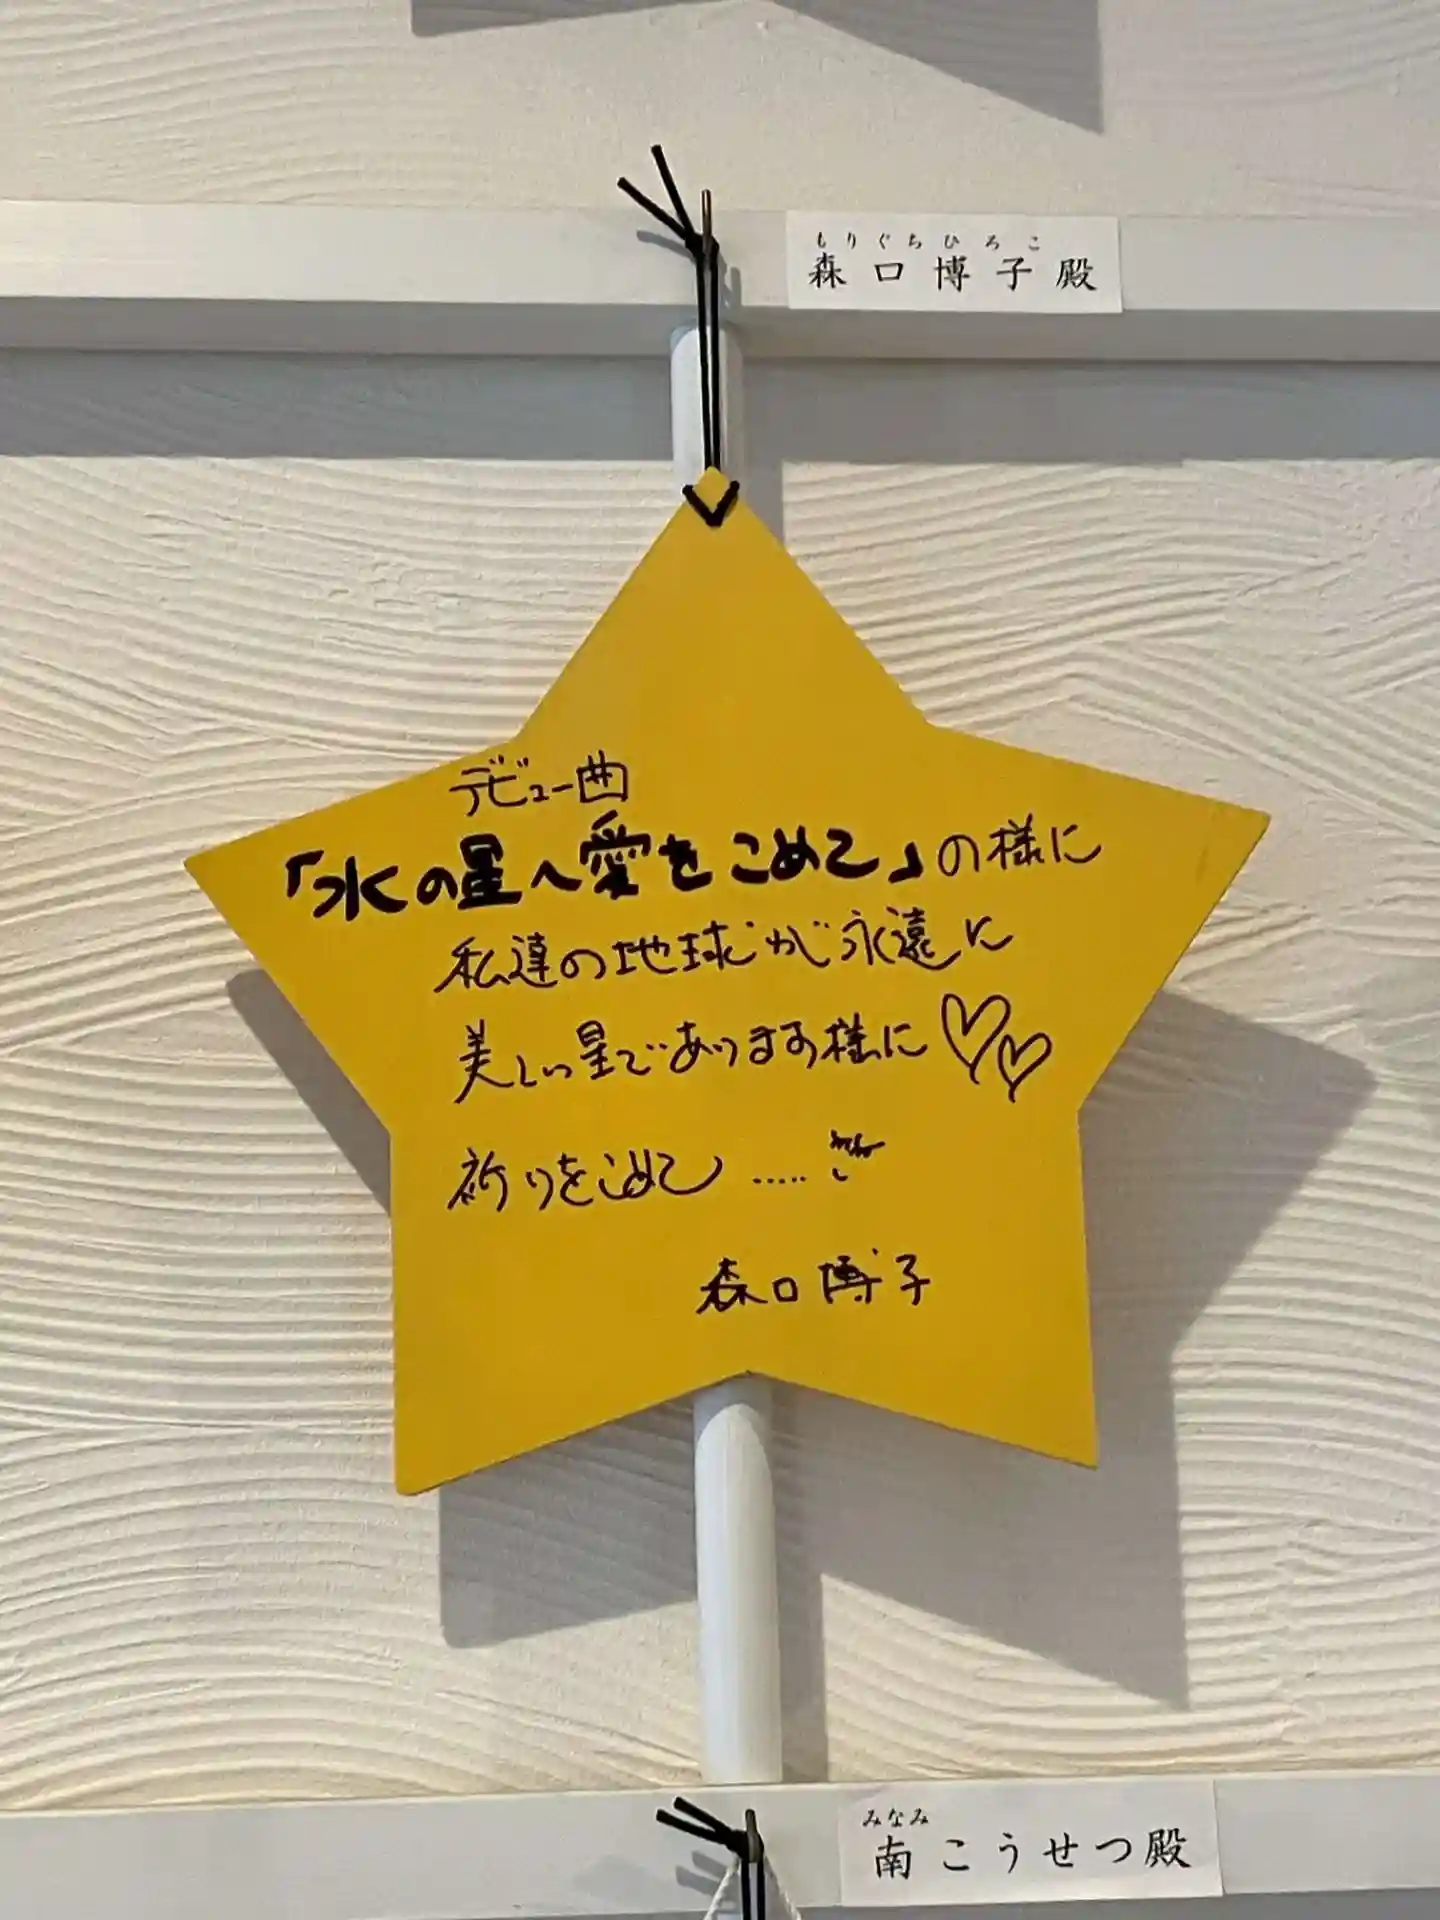 もりぐちひろこ
森口博子殿
デビュー曲
「水の星へ愛をこめて」の様に
私達の地球が永遠に
美しい星であります様に♡♡
祈りをこめて.....
森口博子
みなみ
南こうせつ殿